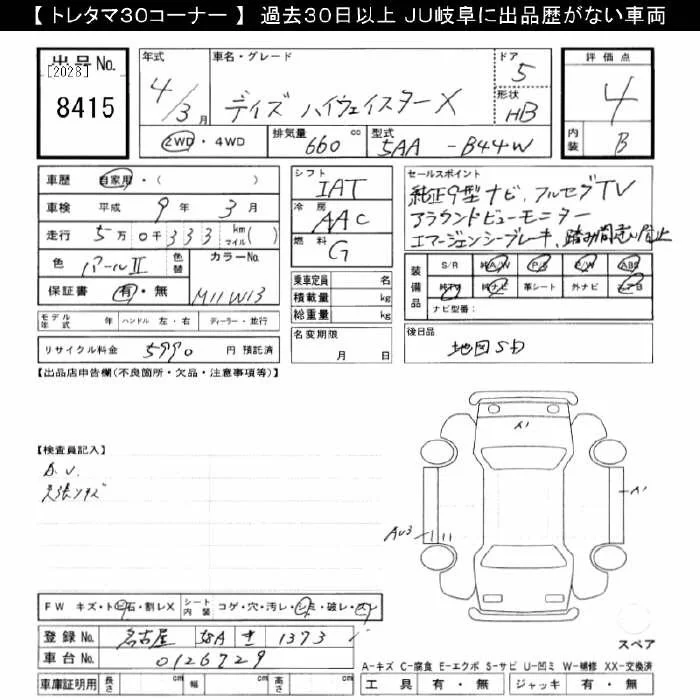 【 トレタマ30コーナー 】 過去30日以上 JU岐阜に出品歴がない車両
出品No. [2028] 8415
年式 4/3月
車名・グレード デイズ ハイウェイスターX
ドア 5
形状 HB
2WD・4WD
排気量 660 cc
型式 5AA-B44W
評価点 4
内装 B
車歴 自家用・( )
車検 平成 9年 3月
走行 5万0千333 km マイル( )
色 パールII 色替 カラーNo.
保証書 有・無 M11W13
モデル年式 年 ハンドル 左・右 ディーラー・並行
リサイクル料金 5990 円 預託済
シフト IAT
冷房 AAC
燃料 G
乗車定員 名
積載量 kg
総重量 kg
名変期限 月 日
セールスポイント
純正9型ナビ、フルセグTV
アラウンドビューモニター
エマージェンシーブレーキ、踏み間違い防止
装備品 S/R 純A/W P/S P/W ABS
純TV 純ナビ 革シート 外ナビ エアB
ナビ型番:
後日品
地図SD
【出品店申告欄(不良箇所・欠品・注意事項等)】
【検査員記入】
A1
A1
AU3
FW キズ・ト・石・割レX シート内装 コゲ・穴・汚レ・シミ・破レ・スレ
登録No. 名古屋 58A せ 1373
車台No. 0126729
車庫証明用 長さ cm 幅 cm 高さ cm
スペア
A-キズ C-腐食 E-エクボ S-サビ U-凹ミ W-補修 XX-交換済
工具 有・無 ジャッキ 有・無